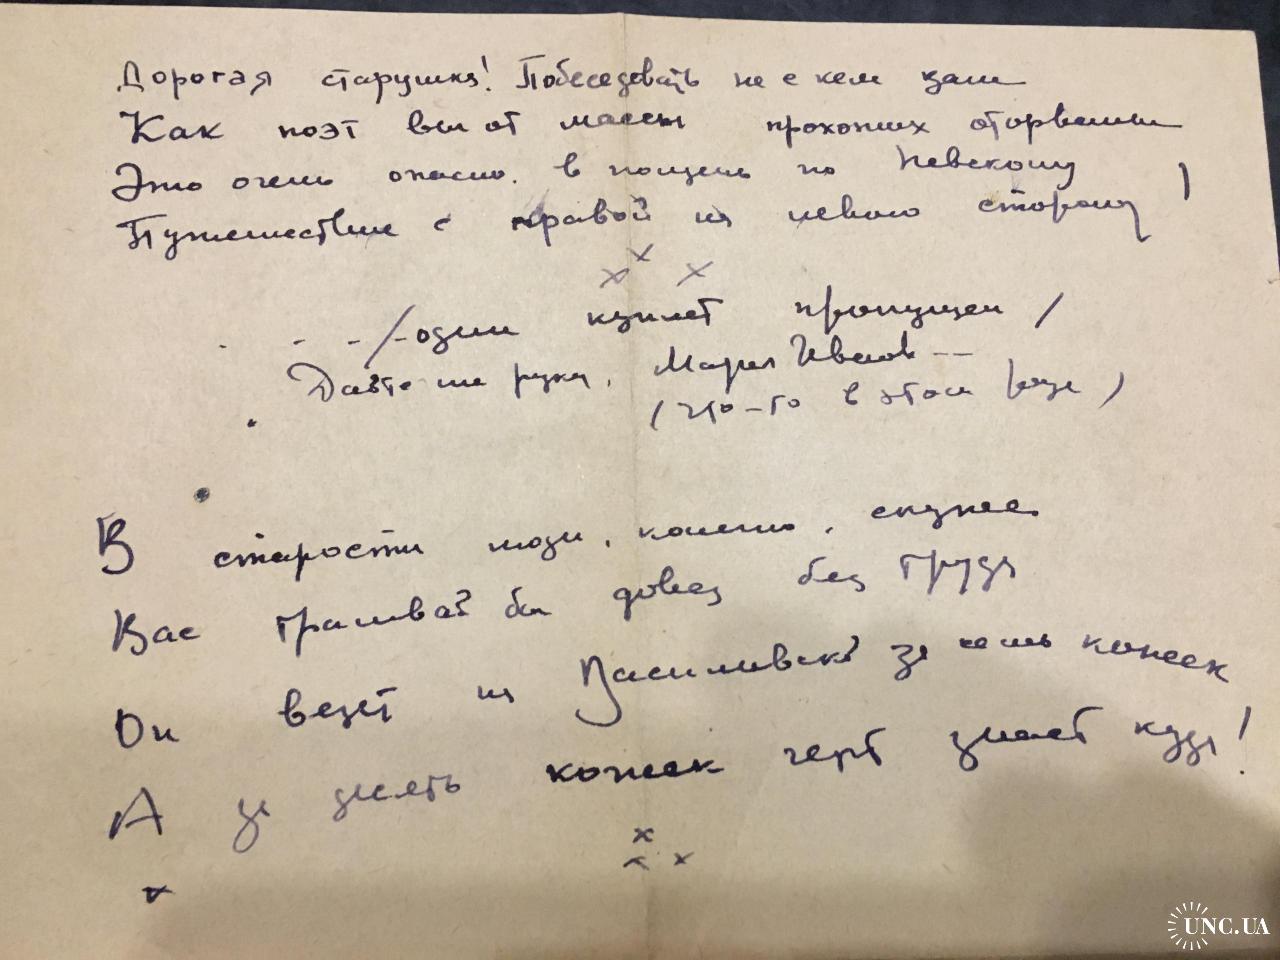 Дорогая старушка! Побеседовать не с кем вам
Как поэт вы от массы прохожих оторваны
Это очень опасно, в полдень по Невскому
Путешествие с правой на левую сторону!
х х х
. - - /-один куплет пропущен /
Дайте им руку, Мария Иванов--
( что-то в этом роде )
В старости люди, конечно, скупее
Вас трамвай бы довез без труда
Он везет на Василивский за семь копеек
А за десять копеек черт знает куда!
х
х х
х
UNC.UA